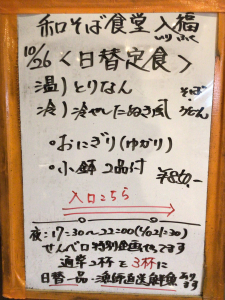 和そば食堂 入福
いり ふく
10/26 <日替定食>
温) とりなん そば
冷) 冷やしたぬき風 うどん
・おにぎり(ゆかり)
・小鉢 2品付 ¥850.-
入口こちら
夜:17:30〜22:00(L/O21:30)
せんべロ特別企画やってます
通常2杯を3杯に
日替一品・漁師直送鮮魚あります